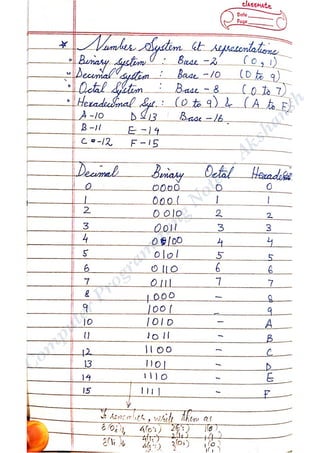 classmate
Date
Page
* Number System & representations
• Binary system : Base - 2 (0, 1)
• Decimal system : Base - 10 (0 to 9)
• Octal System : Base - 8 (0 to 7)
• Hexadecimal Sys. : (0 to 9) & (A to F)
A - 10 D - 13 Base - 16.
B - 11 E - 14
C - 12 F - 15
Decimal Binary Octal Hexadec
0 0000 0 0
1 0001 1 1
2 0010 2 2
3 0011 3 3
4 0100 4 4
5 0101 5 5
6 0110 6 6
7 0111 7 7
8 1000 - 8
9 1001 - 9
10 1010 - A
11 1011 - B
12 1100 - C
13 1101 - D
14 1110 - E
15 1111 - F
To remember, write them as
Computer Programming Notes Akshansh